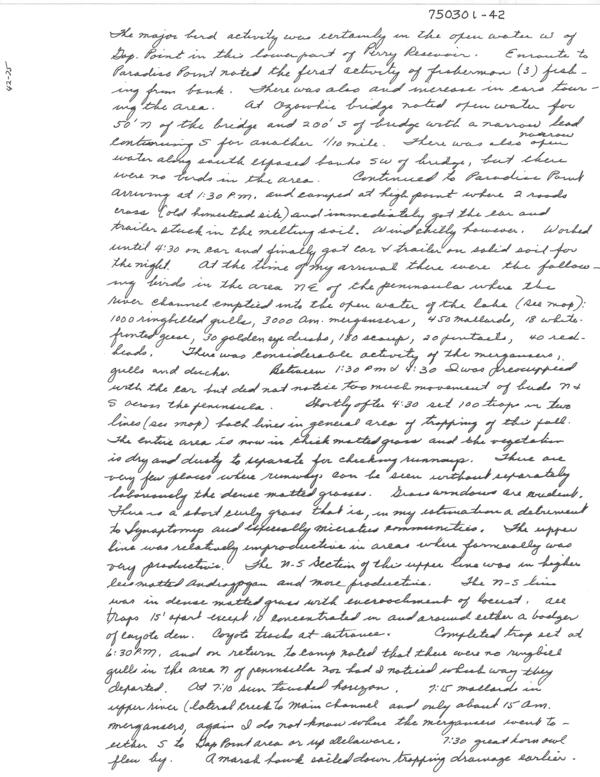 750301-42
42-75
The major bird activity was certainly in the open water W of
Gap. Point in this lower part of Perry Resevoir. Enroute to
Paradise Point noted the first activity of fisherman (3) fish-
ing from bank. There was also and increase in cars tour-
ing the area. At Ozawkie bridge noted open water for
50' N of the bridge and 200' S of bridge with a narrow lead
continuing S for another 1/10 mile. There was also narrow open
water along south exposed banks SW of bridge, but there
were no birds in the area. Continued to Paradise Point
arriving at 1:30 P.M. and camped at high point where 2 roads
cross (old homestead site) and immediately got the car and
trailer stuck in the melting soil. Wind chilly however. Worked
until 4:30 on car and finally got car & trailer on solid soil for
the night. At the time of my arrival there were the follow-
ing birds in the area NE of the peninsula where the
river channel emptied into the open water of the lake (see map):
1000 ringbilled gulls, 3000 Am. mergansers, 450 mallards, 18 white-
fronted geese, 30 goldeneye ducks, 180 scaup, 20 pintails, 40 red-
heads. There was considerable activity of the mergansers,
gulls and ducks. Between 1:30 PM & 4:30 I was preoccupied
with the car but did not notice too much movement of birds N &
S across the peninsula. Shortly after 4:30 set 100 traps in two
lines (see map) both lines in general area of trapping of this fall.
The entire area is now in thick matted grass and the vegetation
is dry and dusty to separate for checking runways. There are
very few places where runways can be seen without separately
laboriously the dense matted grasses. Grass windows are evident.
There is a short curly grass that is, in my estimation a detriment
to Synaptomys and especially microtus communities. The upper
line was relatively unproductive in areas where formerally was
very productive. The N-S Section of this upper line was in higher
less matted Andropogan and more productive. The N-S line
was in dense matted grass with encroachment of locust. All
traps 15' apart except 10 concentrated in and around either a badger
or coyote den. Coyote tracks at entrance. Completed trap set at
6:30 P.M. and on return to camp noted that there were no ringbill
gulls in the area N of peninsula nor had I noticed which way they
departed. At 7:10 sun touched horizon. 7:15 mallards in
upper river (lateral creek to main channel and only about 15 Am.
mergansers, again I do not know where the mergansers went to -
either S to Gap Point area or up Delaware. 7:30 great horn owl
flew by. A marsh hawk sailed down trapping drainage earlier.